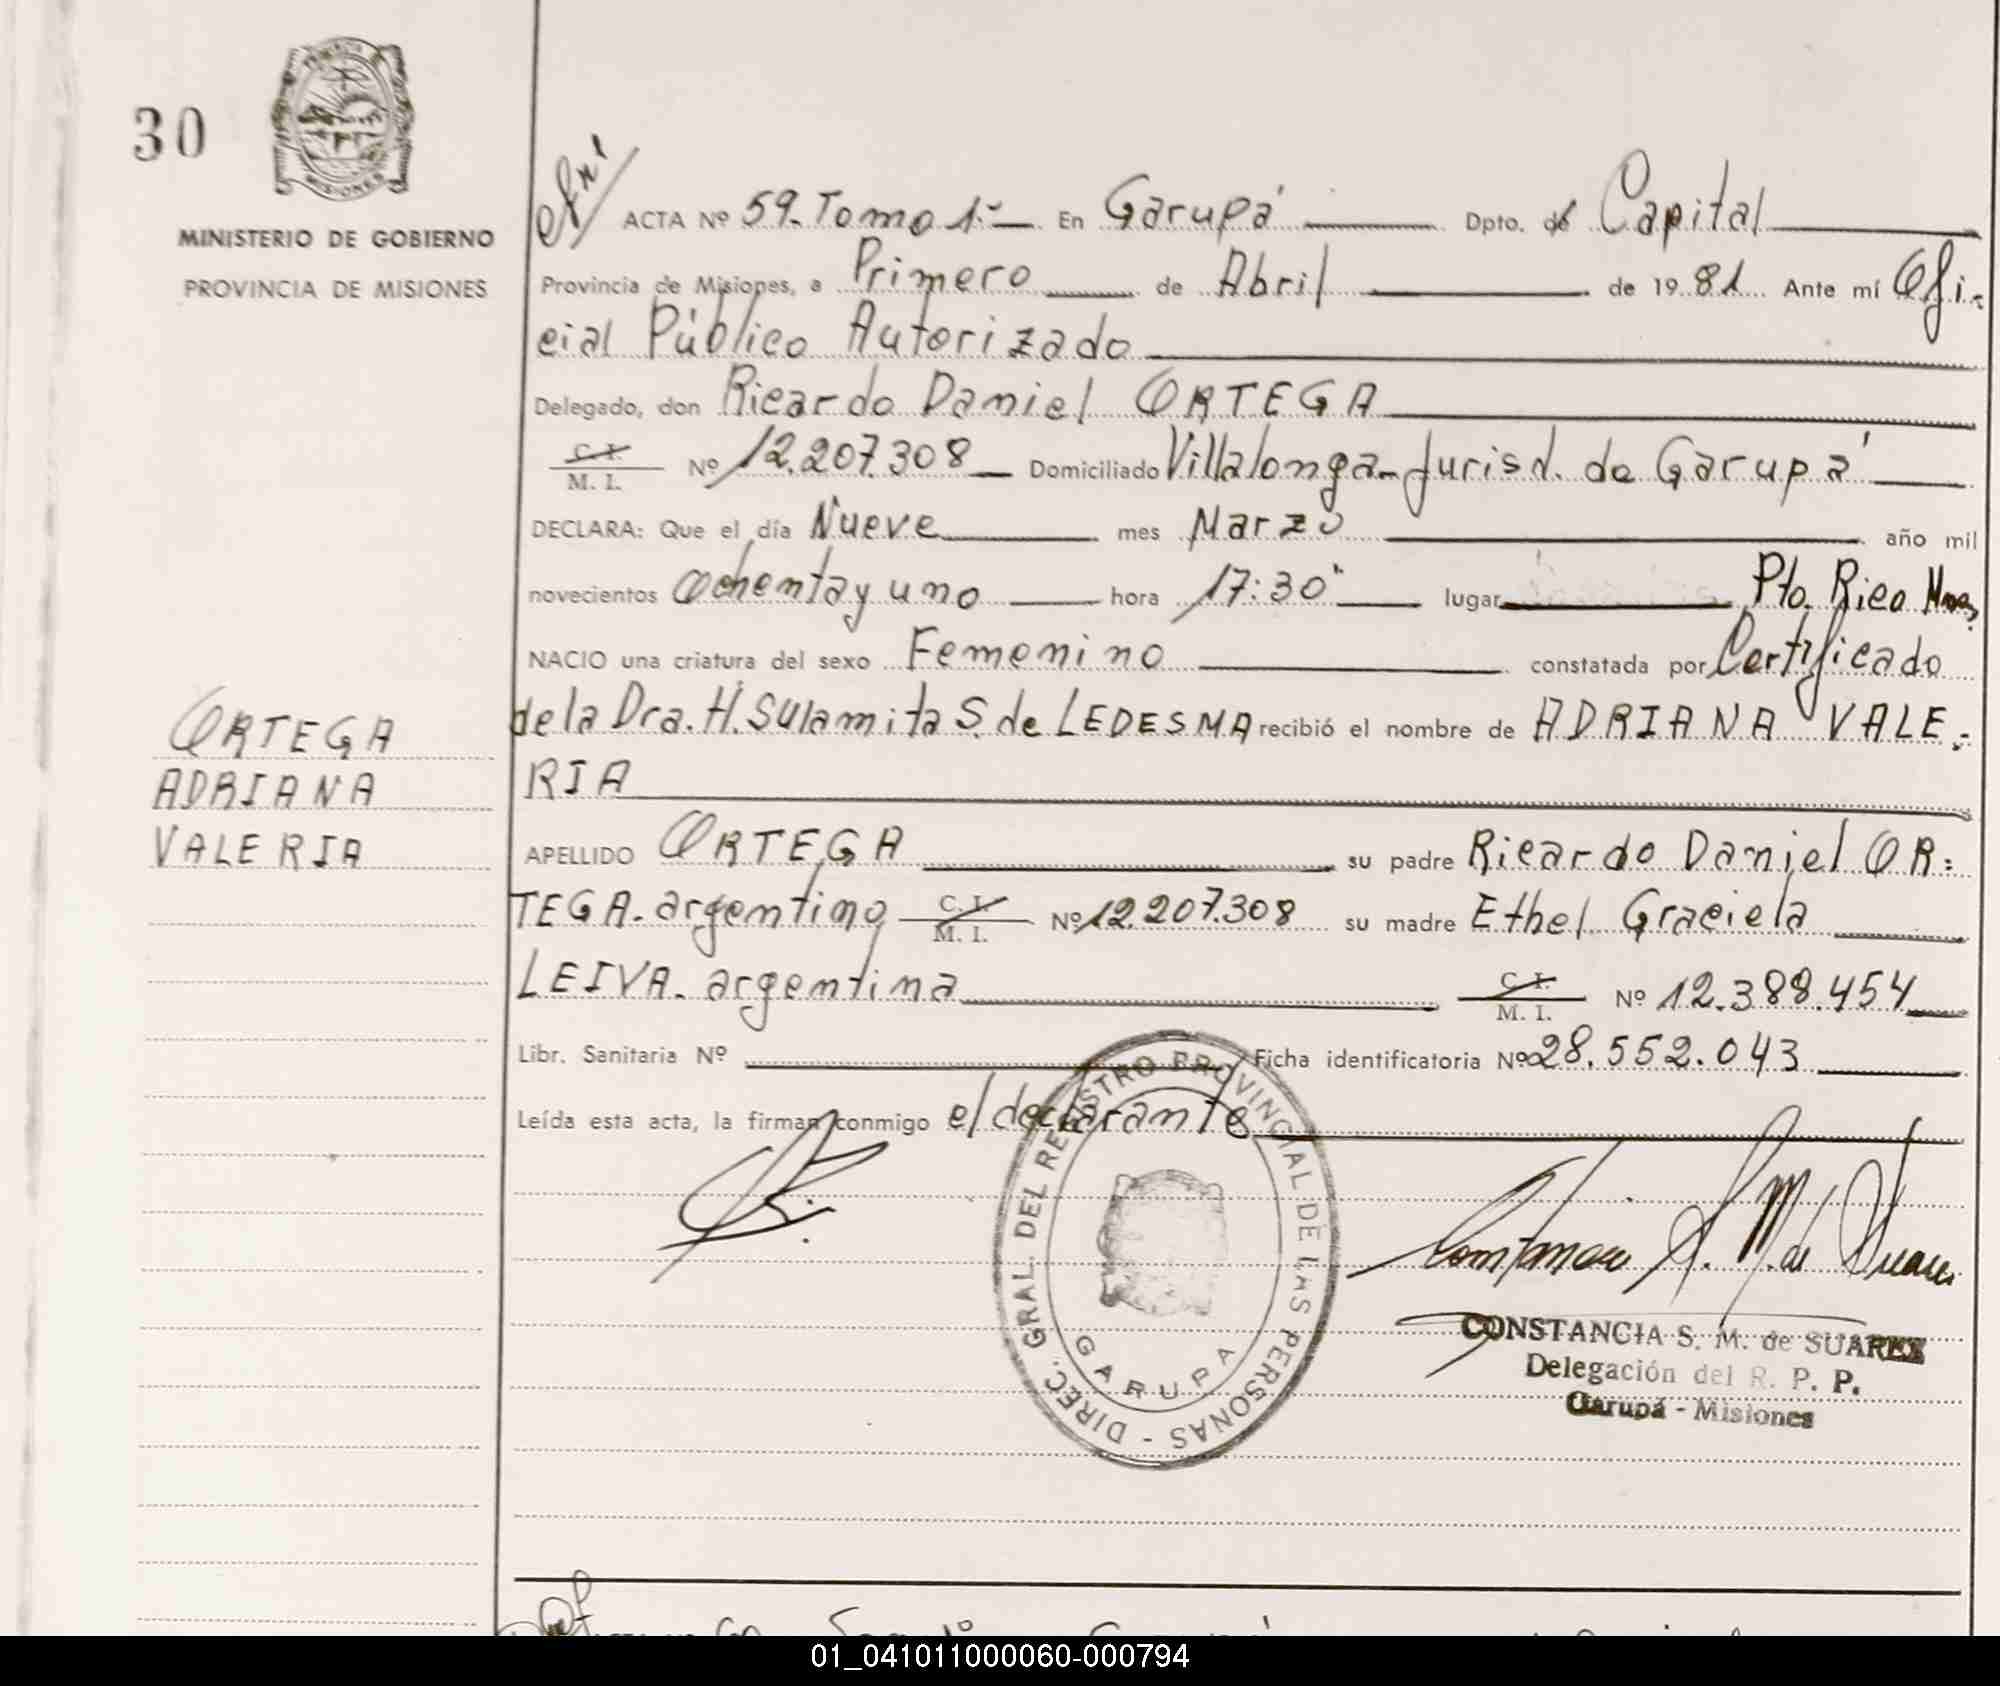 30
MISIONES
MINISTERIO DE GOBIERNO
PROVINCIA DE MISIONES
ORTEGA
ADRIANA
VALERIA
ACTA Nº 59-Tomo 1:- En Garupá Dpto. de Capital
Provincia de Misiones, a Primero de Abril de 1981 Ante mí Ofi-
cial Público Autorizado
Delegado, don Ricardo Daniel ORTEGA
C. I.
M. I. Nº 12.207.308 Domiciliado Villalonga-Jurisd. de Garupá
DECLARA: Que el día Nueve mes Marzo año mil
novecientos Ochenta y uno hora 17:30" lugar Pto. Rico Mnes
NACIO una criatura del sexo Femenino constatada por Certificado
de la Dra. H. Sulamita S. de LEDESMA recibió el nombre de ADRIANA VALE-
RIA
APELLIDO ORTEGA su padre Ricardo Daniel OR=
TEGA-argentino C. I. M. I. Nº 12.207.308 su madre Ethel Graciela
LEIVA-argentina C. I. M. I. Nº 12.388.454
Libr. Sanitaria Nº Ficha identificatoria Nº 28.552.043
Leída esta acta, la firman conmigo el declarante
DIREC. GRAL. DEL REGISTRO PROVINCIAL DE LAS PERSONAS -
GARUPA
Constancia S. M. de Suarez
CONSTANCIA S. M. de SUAREZ
Delegación del R. P. P.
Garupá - Misiones
01_041011000060-000794